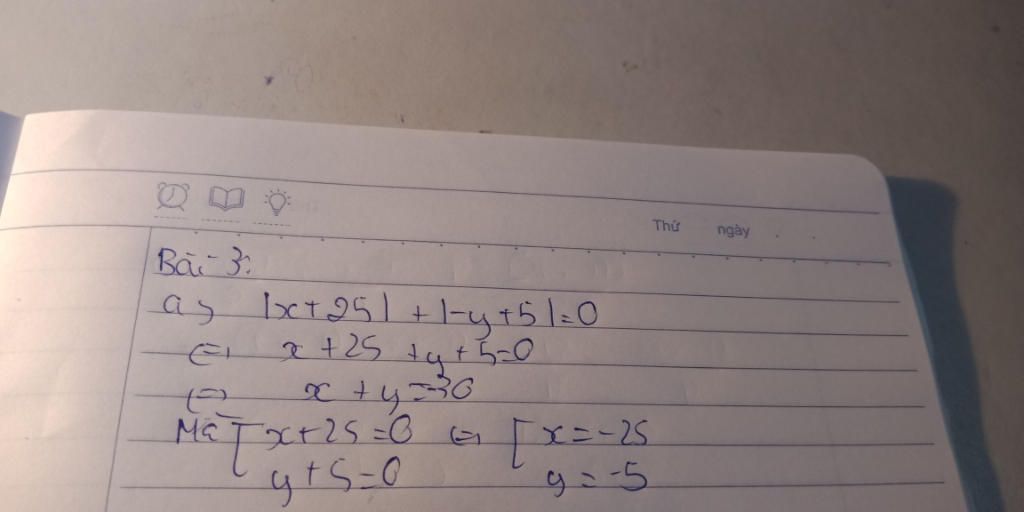 Thứ ngày
Bài 3:
a> |x+25| + |-y+5|=0
<=> x+25 +y+5=0
<=> x+y=-30
Mà [x+25=0 <=> [x=-25
y+5=0 y=-5